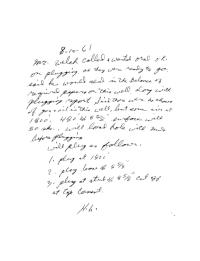 8-10-61
Mr. Welch called & wanted oral o.k.
on plugging as they were ready to go.
said he would send in the balance of
required papers on this well along with
plugging report. Said there were no shows
of gas or oil in this well, but some
1800'. 480' of 8 5/8" surface with
50 sks. will load hole with mud
before plugging
will plug as follows.
1. plug at 1800'
2. plug base of 8 5/8
3. plug at stub of 8 5/8" cut off
at top cement.